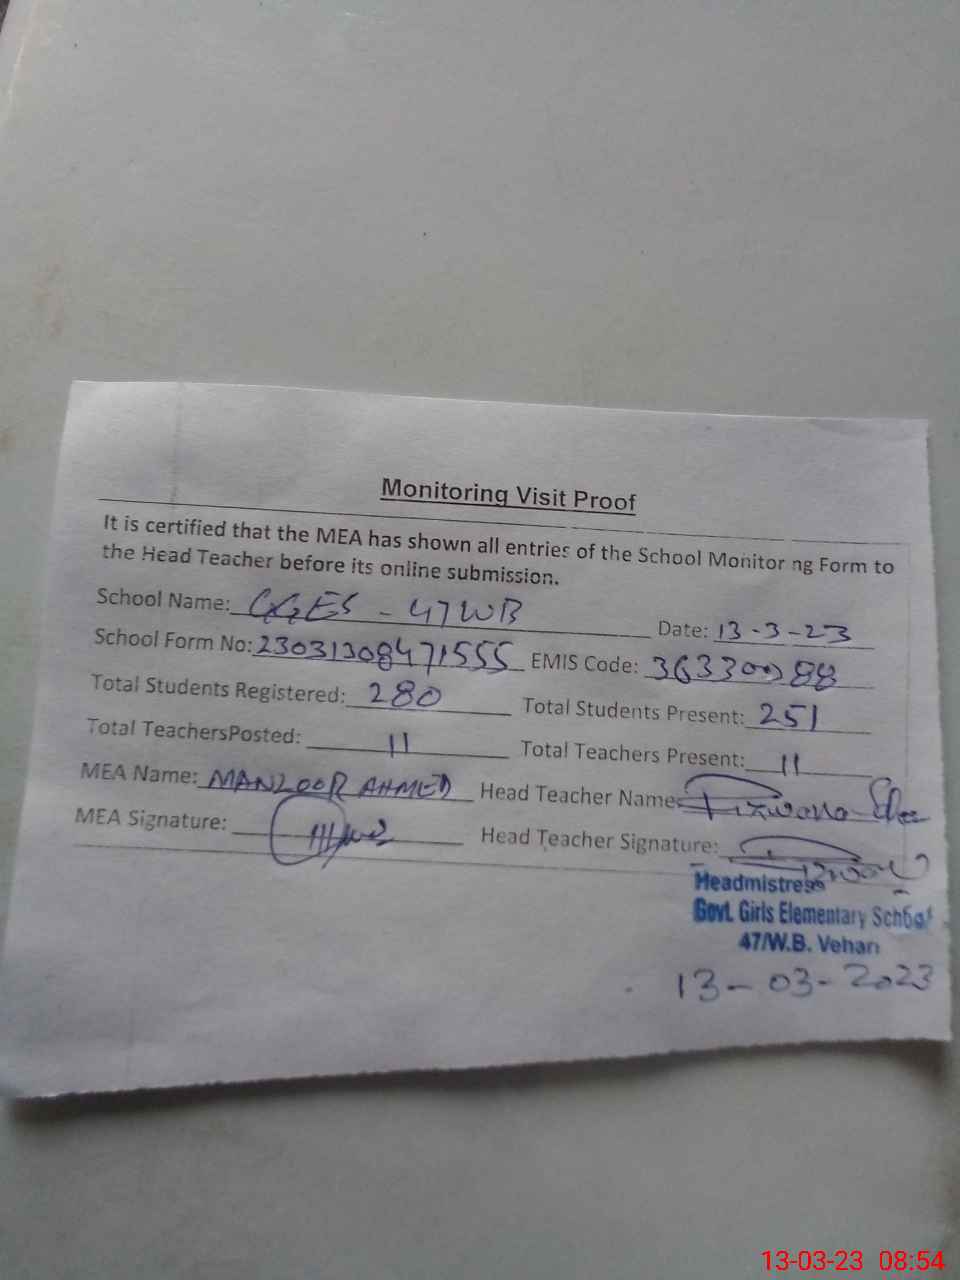 Monitoring Visit Proof
It is certified that the MEA has shown all entries of the School Monitor ng Form to
the Head Teacher before its online submission.
School Name: GGES - 47WB Date: 13-3-23
School Form No: 23031308471555 EMIS Code: 36330088
Total Students Registered: 280 Total Students Present: 251
Total TeachersPosted: 11 Total Teachers Present: 11
MEA Name: MANZOOR AHMED Head Teacher Name: Rizwana
MEA Signature: Head Teacher Signature:
Headmistress
Govt. Girls Elementary School
47/W.B. Vehari
13-03-2023
13-03-23 08:54